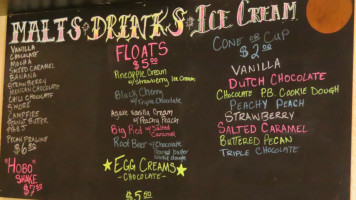 MALTS • DRINKS • ICE CREAM
VANILLA
CHOCOLATE
MOCHA
SALTED CARAMEL
BANANA
STRAWBERRY
MEXICAN CHOCOLATE
CHILI CHOCOLATE
S'MORE
CAMPFIRE
PEANUT BUTTER
PB&J
PECAN PRALINE
$6.50
"HOBO"
SHAKE
FLOATS
$5.00
Pineapple Cream
w/Strawberry Ice Cream
Black Cherry
w/Triple Chocolate
Agave Vanilla Cream
w/Peachy Peach
Big Red w/Salted
Caramel
Root Beer w/Chocolate
Peanut Butter
Cookie dough
EGG CREAMS
- CHOCOLATE -
$5.50
CONE OR CUP
$2.00
VANILLA
DUTCH CHOCOLATE
CHOCOLATE P.B. COOKIE DOUGH
PEACHY PEACH
STRAWBERRY
SALTED CARAMEL
BUTTERED PECAN
TRIPLE CHOCOLATE